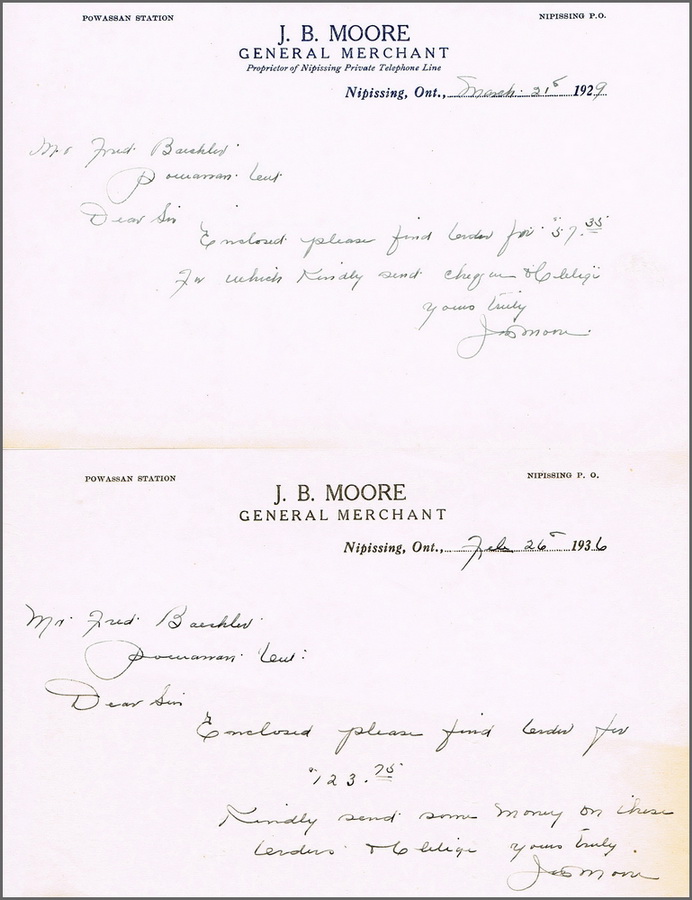 POWASSAN STATION
NIPISSING P.O.
J. B. MOORE
GENERAL MERCHANT
Proprietor of Nipissing Private Telephone Line
Nipissing, Ont., March 21st 1929
Mr Fred Baechler
Powassan Ont
Dear Sir
Enclosed please find order for $57.35
For which Kindly send cheque & Oblige
yours truly
J B Moore
POWASSAN STATION
NIPISSING P. O.
J. B. MOORE
GENERAL MERCHANT
Nipissing, Ont., Feb 26 1936
Mr Fred Baechler
Powassan Ont.
Dear Sir
Enclosed please find order for
$123.75
Kindly send some money on these
orders & Oblige yours truly.
J B Moore